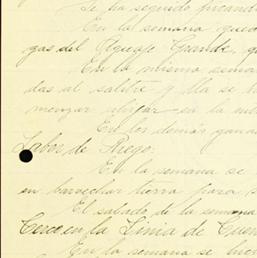 Se ha seguido picando
En la semana qued
gas del Aguaje Grande, q
En la misma sema
das al salitre y lla se h
menzar ahijar en la me
En los demás gana
Labor de Riego.
En la semana se
en barvechar tierra para s
El sabado de la semana
Cerco en la Linia de Cuen
En la semana se hic